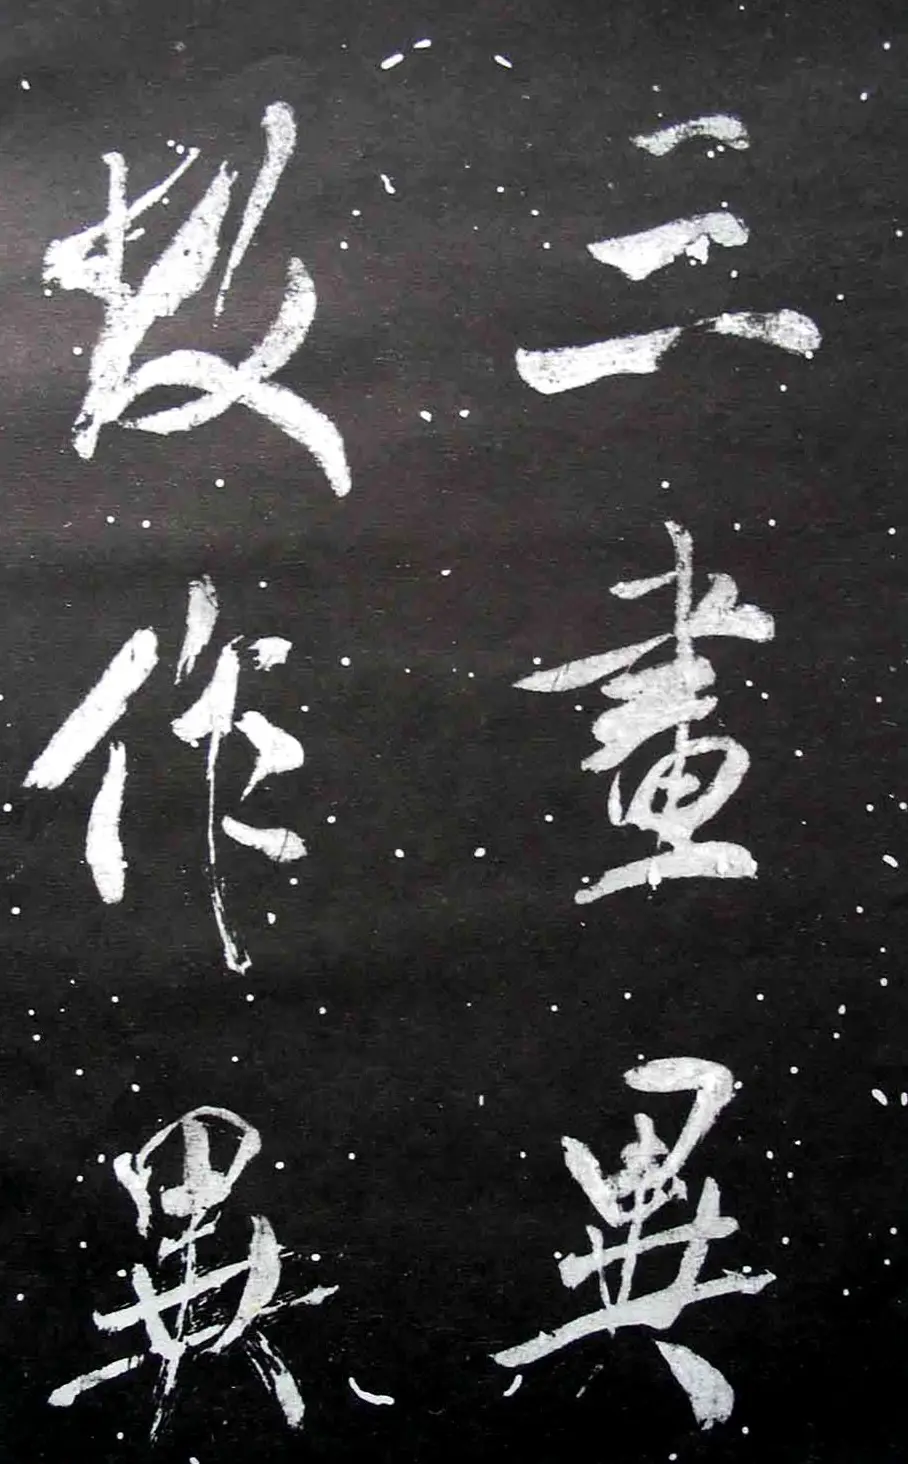 三畫異
故作異